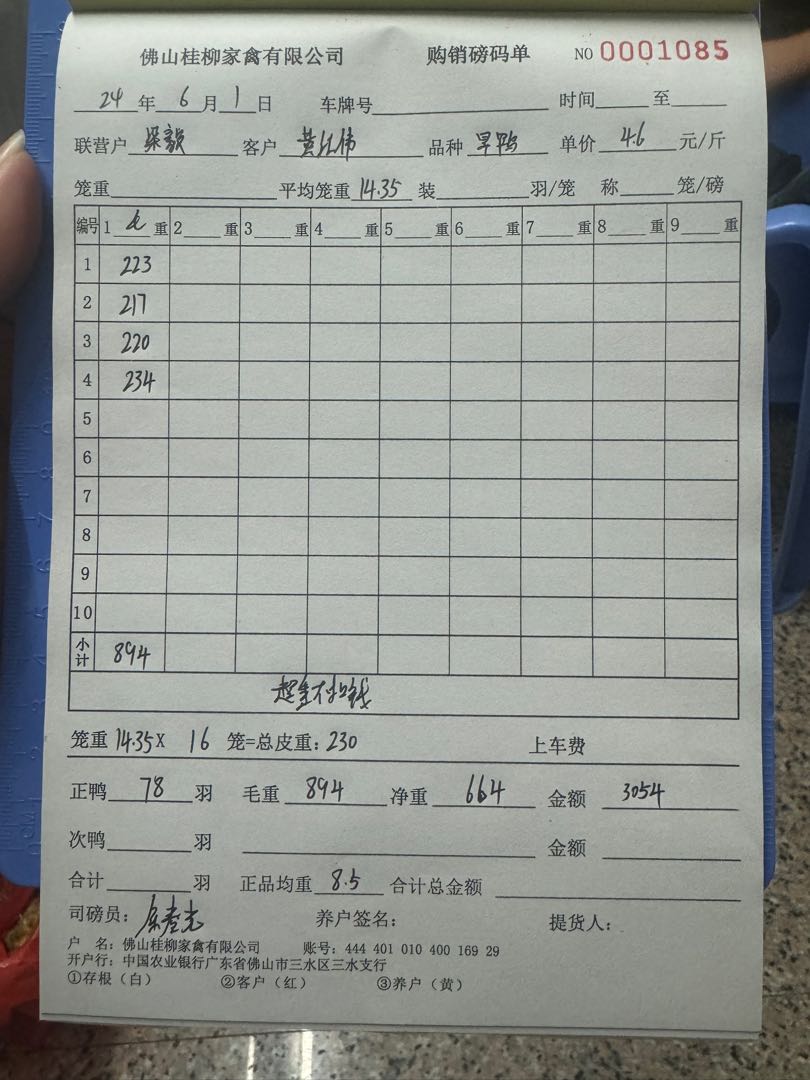 佛山桂柳家禽有限公司 购销磅码单 NO 0001085
24 年 6 月 1 日 车牌号 时间 至
联营户 梁毅 客户 黄仕伟 品种 旱鸭 单价 4.6 元/斤
笼重 平均笼重 14.35 装 羽/笼 称 笼/磅
编号 1 重 2 重 3 重 4 重 5 重 6 重 7 重 8 重 9 重
1 223
2 217
3 220
4 234
5
6
7
8
9
10
小计 894
超重不扣钱
笼重 14.35 X 16 笼=总皮重: 230 上车费
正鸭 78 羽 毛重 894 净重 664 金额 3054
次鸭 羽 金额
合计 羽 正品均重 8.5 合计总金额
司磅员: 养户签名: 提货人:
户 名: 佛山桂柳家禽有限公司 账号: 444 401 010 400 169 29
开户行: 中国农业银行广东省佛山市三水区三水支行
①存根（白） ②客户（红） ③养户（黄）